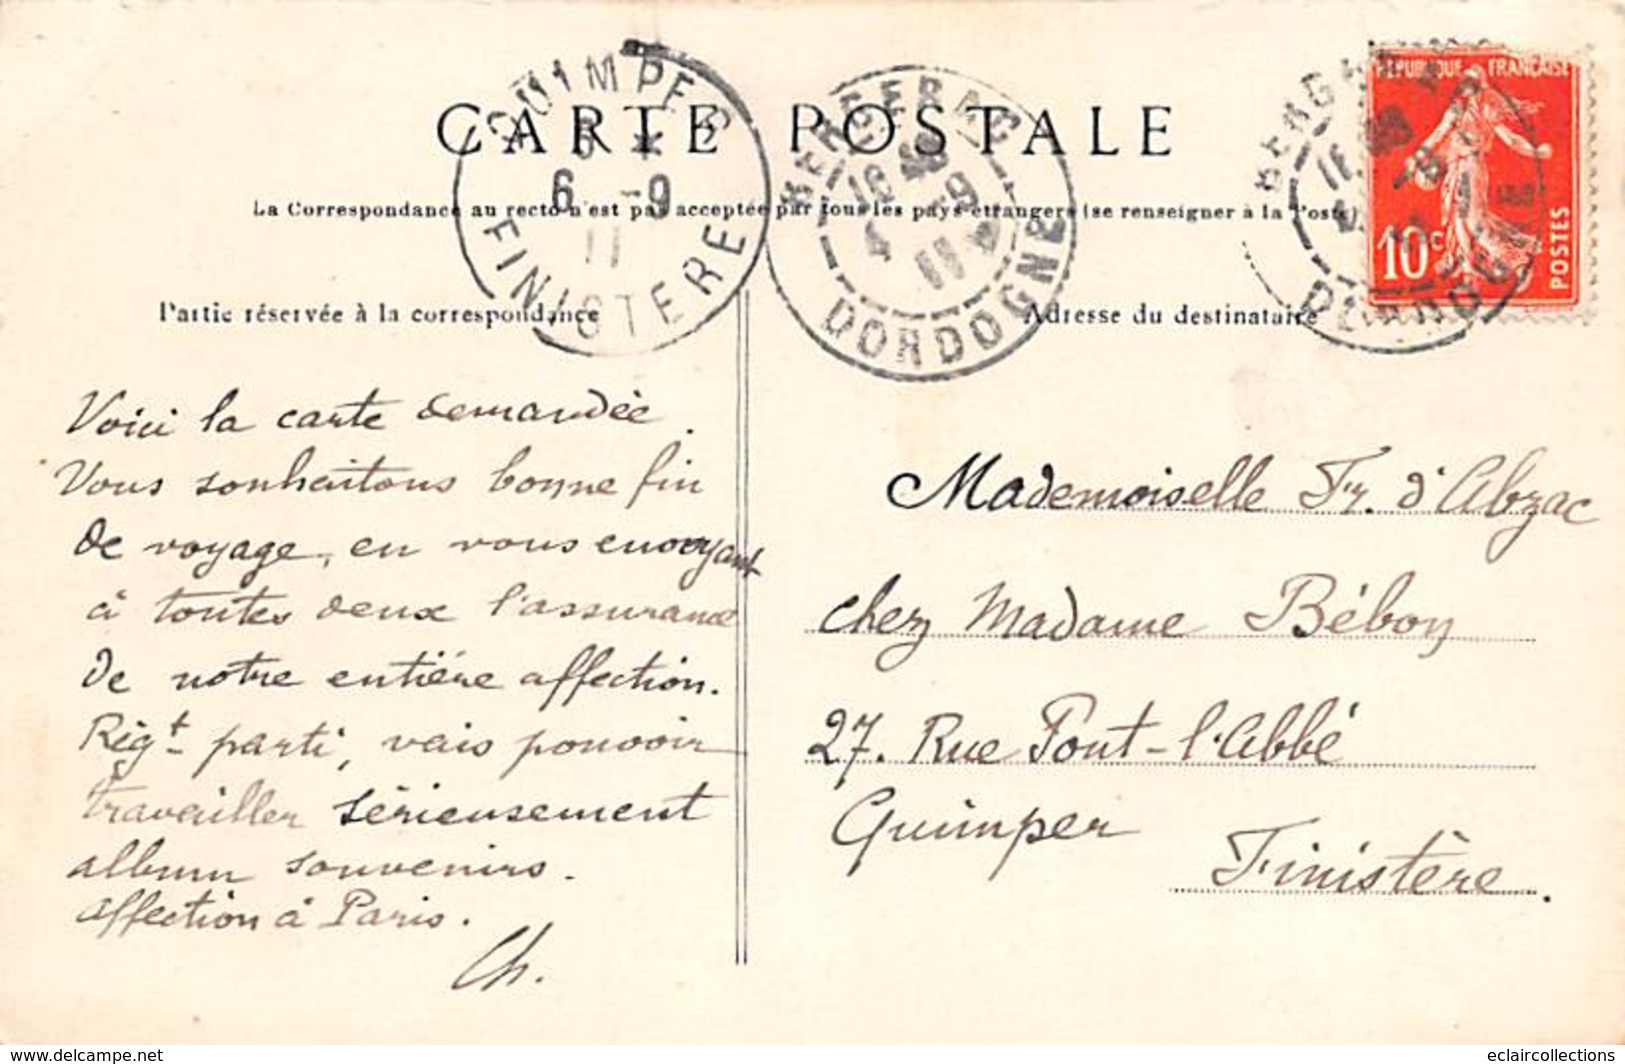 CARTE POSTALE
La Correspondance au recto n'est pas acceptée par tous les pays étrangers (se renseigner à la Poste
Partie réservée à la correspondance
Adresse du destinataire
QUIMPER
6 -9
11
FINISTERE
BERGERAC
16
4 -9
11
DORDOGNE
BERGERAC
DORDOGNE
REPUBLIQUE FRANÇAISE
10c
POSTES
Voici la carte demandée.
Vous souhaitons bonne fin
de voyage, en vous envoyant
à toutes deux l'assurance
de notre entière affection.
Rigt parti, vais pouvoir
travailler sérieusement
album souvenirs.
affection à Paris.
Ch.
Mademoiselle Fr. d'Abzac
chez Madame Bébon
27. Rue Pont-l'Abbé
Quimper
Finistère.
www.delcampe.net
eclaircollections